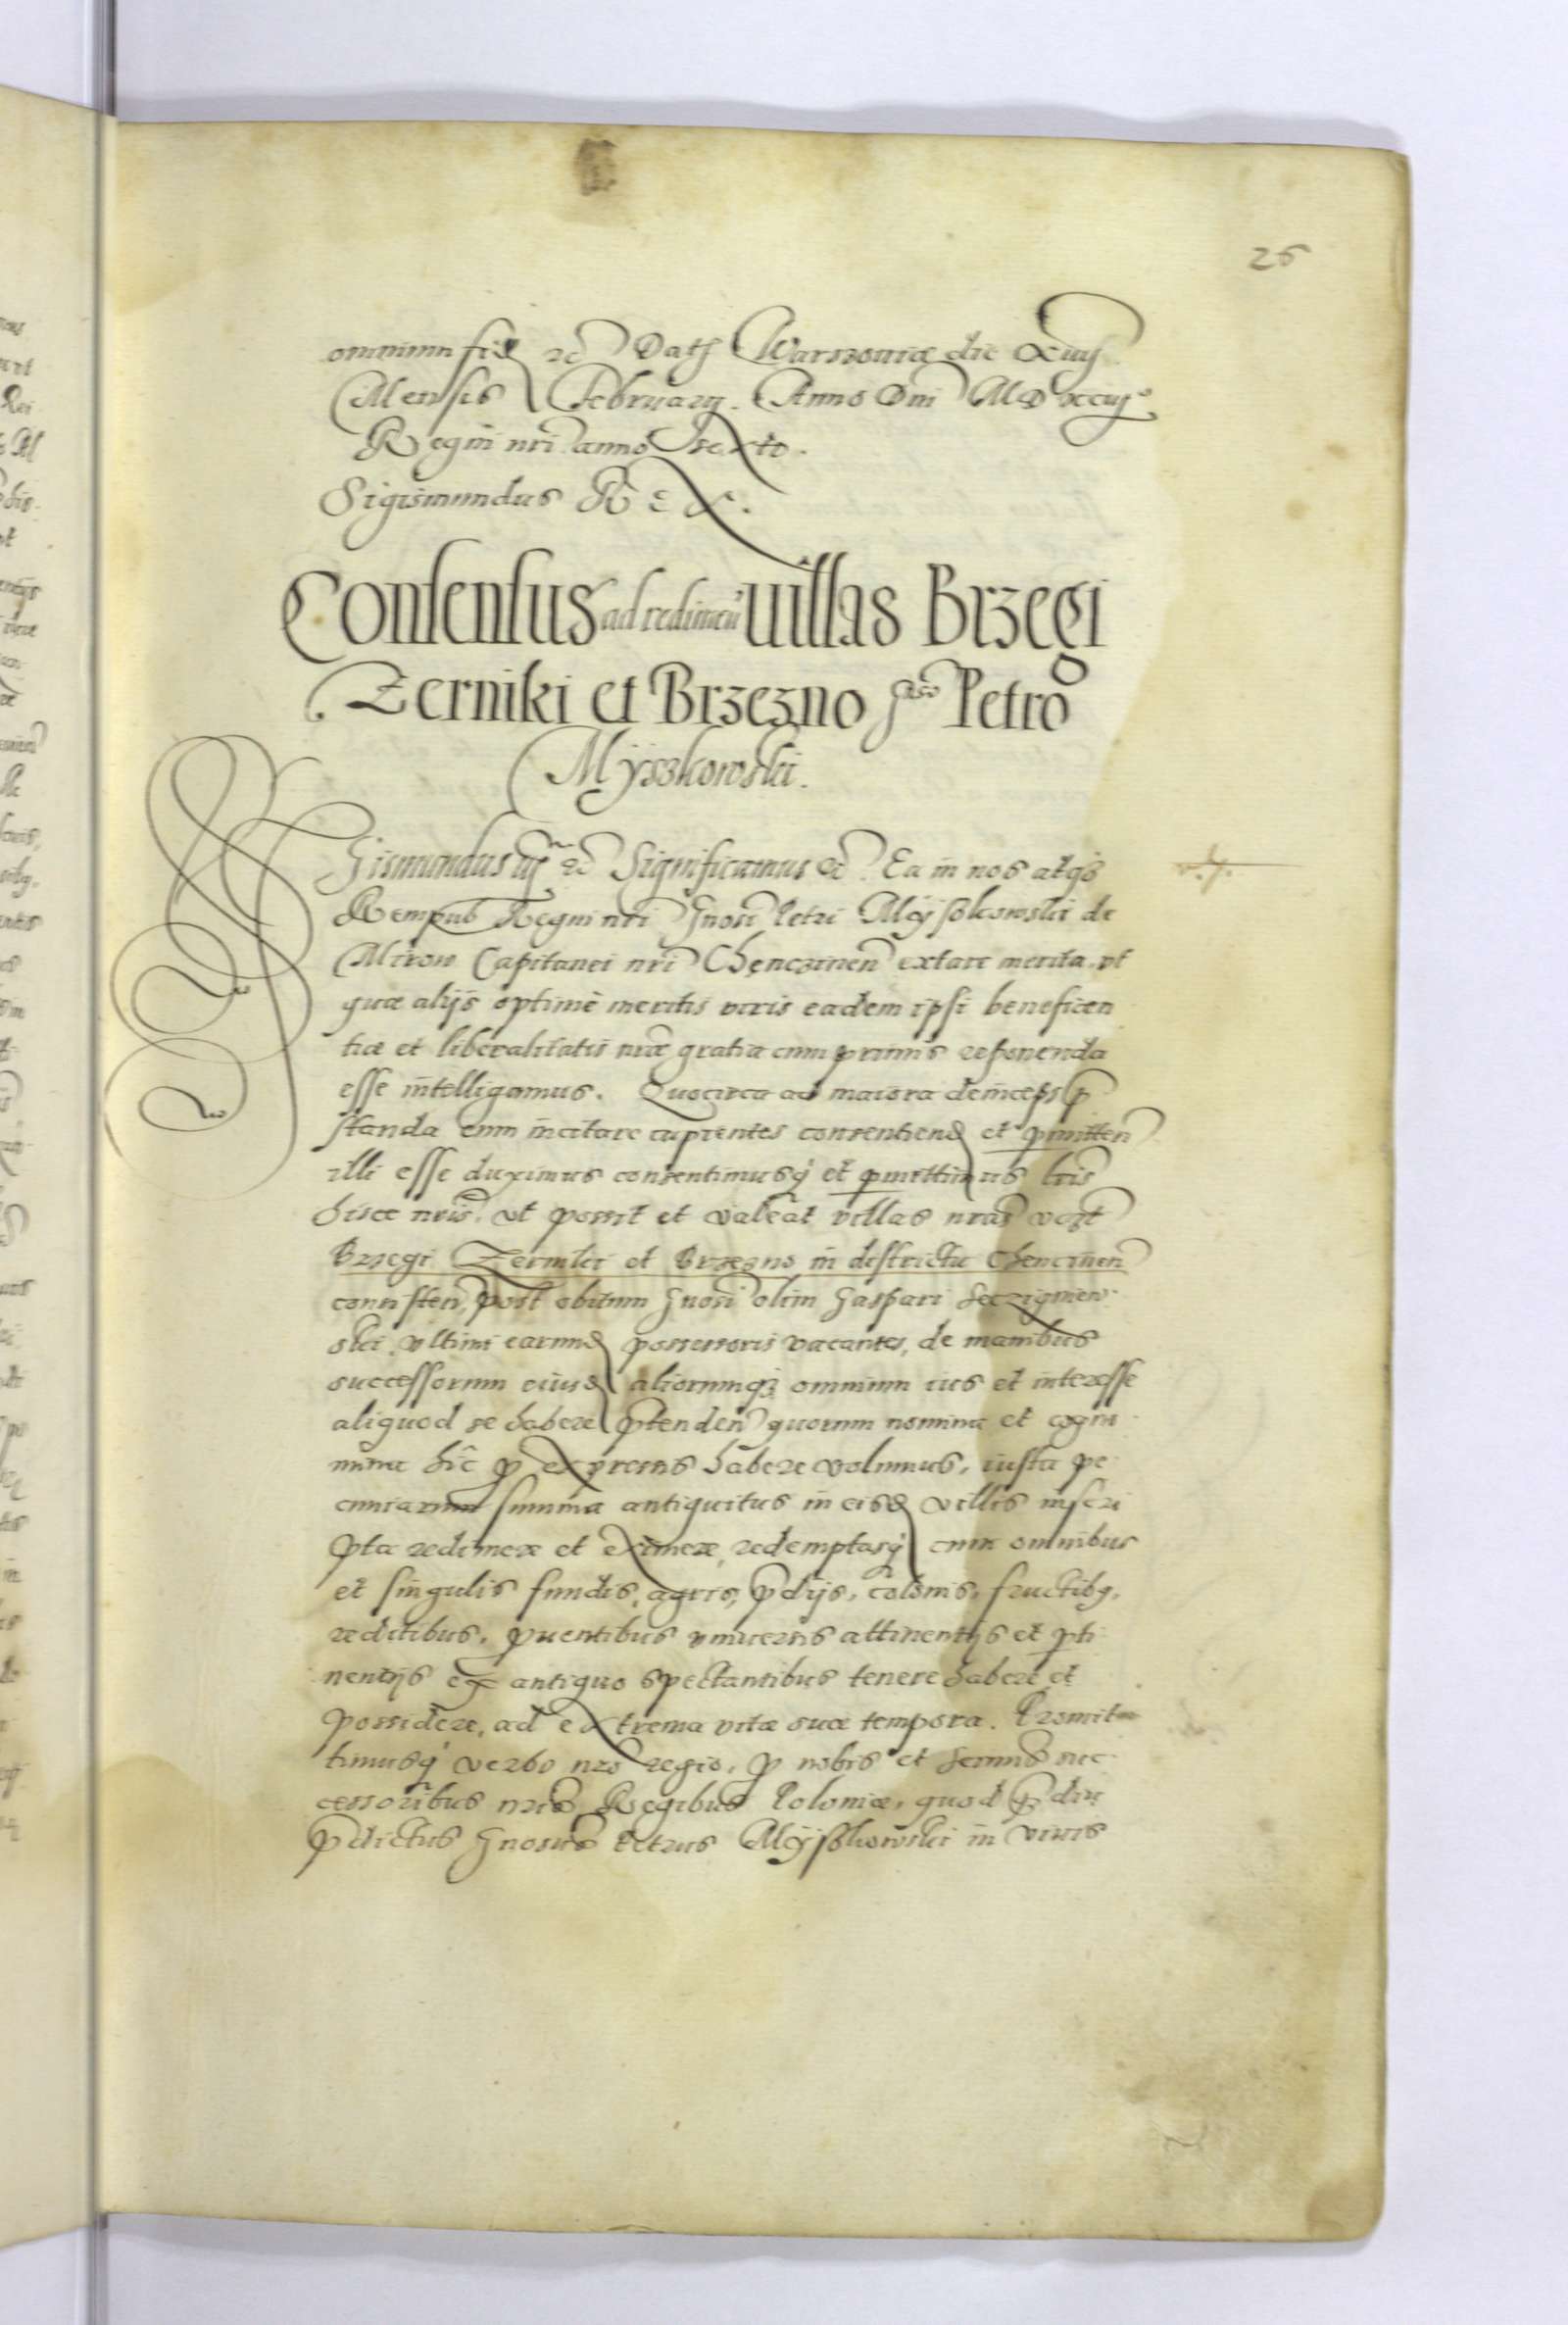 26
omnium fid ec Datt Warszoviae die Xviij
Mensis February. Anno Dni MDXCiij°
Regni nri anno sexto.
Sigismundus REX.
Consensus ad redimen villas Brzegi
Zerniki et Brzezno Gnso Petro
Myszkowski.
Sigismundus iij ec Significamus ec. Ea in nos atqz
Rempub Regni nri Gnosi Petri Myszkowski de
Mirow Capitanei nri Chęnczinen extare merita, ut
quae alijs optimè meritis viris eadem ipsi beneficen
tiae et liberalitatis nrae gratia cum primis reponenda
esse intelligamus. Quocirca ad maiora deinceps p
standa eum incitare cupientes consentiend et pmitten
illi esse duximus consentimusq et pmittimus tris
hisce nris, ut possit et valeat villas nras vozt
Brzegi Zerniki et Brzezno in districtu Chencinen
consisten, post obitum Gnosi olim Gaspari Seczigniew
ski, ultimi earund possessoris vacantes, de manibus
successorum eiusd aliorumqz omnium ius et interesse
aliquod se habere ptenden quorum nomina et cogno
mina hîc p expressis habere volumus, iusta pe
cuniarum summa antiquitus in eisd villis inscri
pta redimere et eximere, redemptasq cum omnibus
et singulis fundis, agris, pdijs, colonis, fructibq,
reditibus, puentibus universis attinentijs et pti
nentijs ex antiquo spectantibus tenere habere et
possidere, ad extrema vitae suae tempora. Promit
timusq verbo nro regio, p nobis et Serinis suc
cessoribus nris Regibus Poloniae, quod q diu
pdictus Gnosus Petrus Myszkowski in vivis